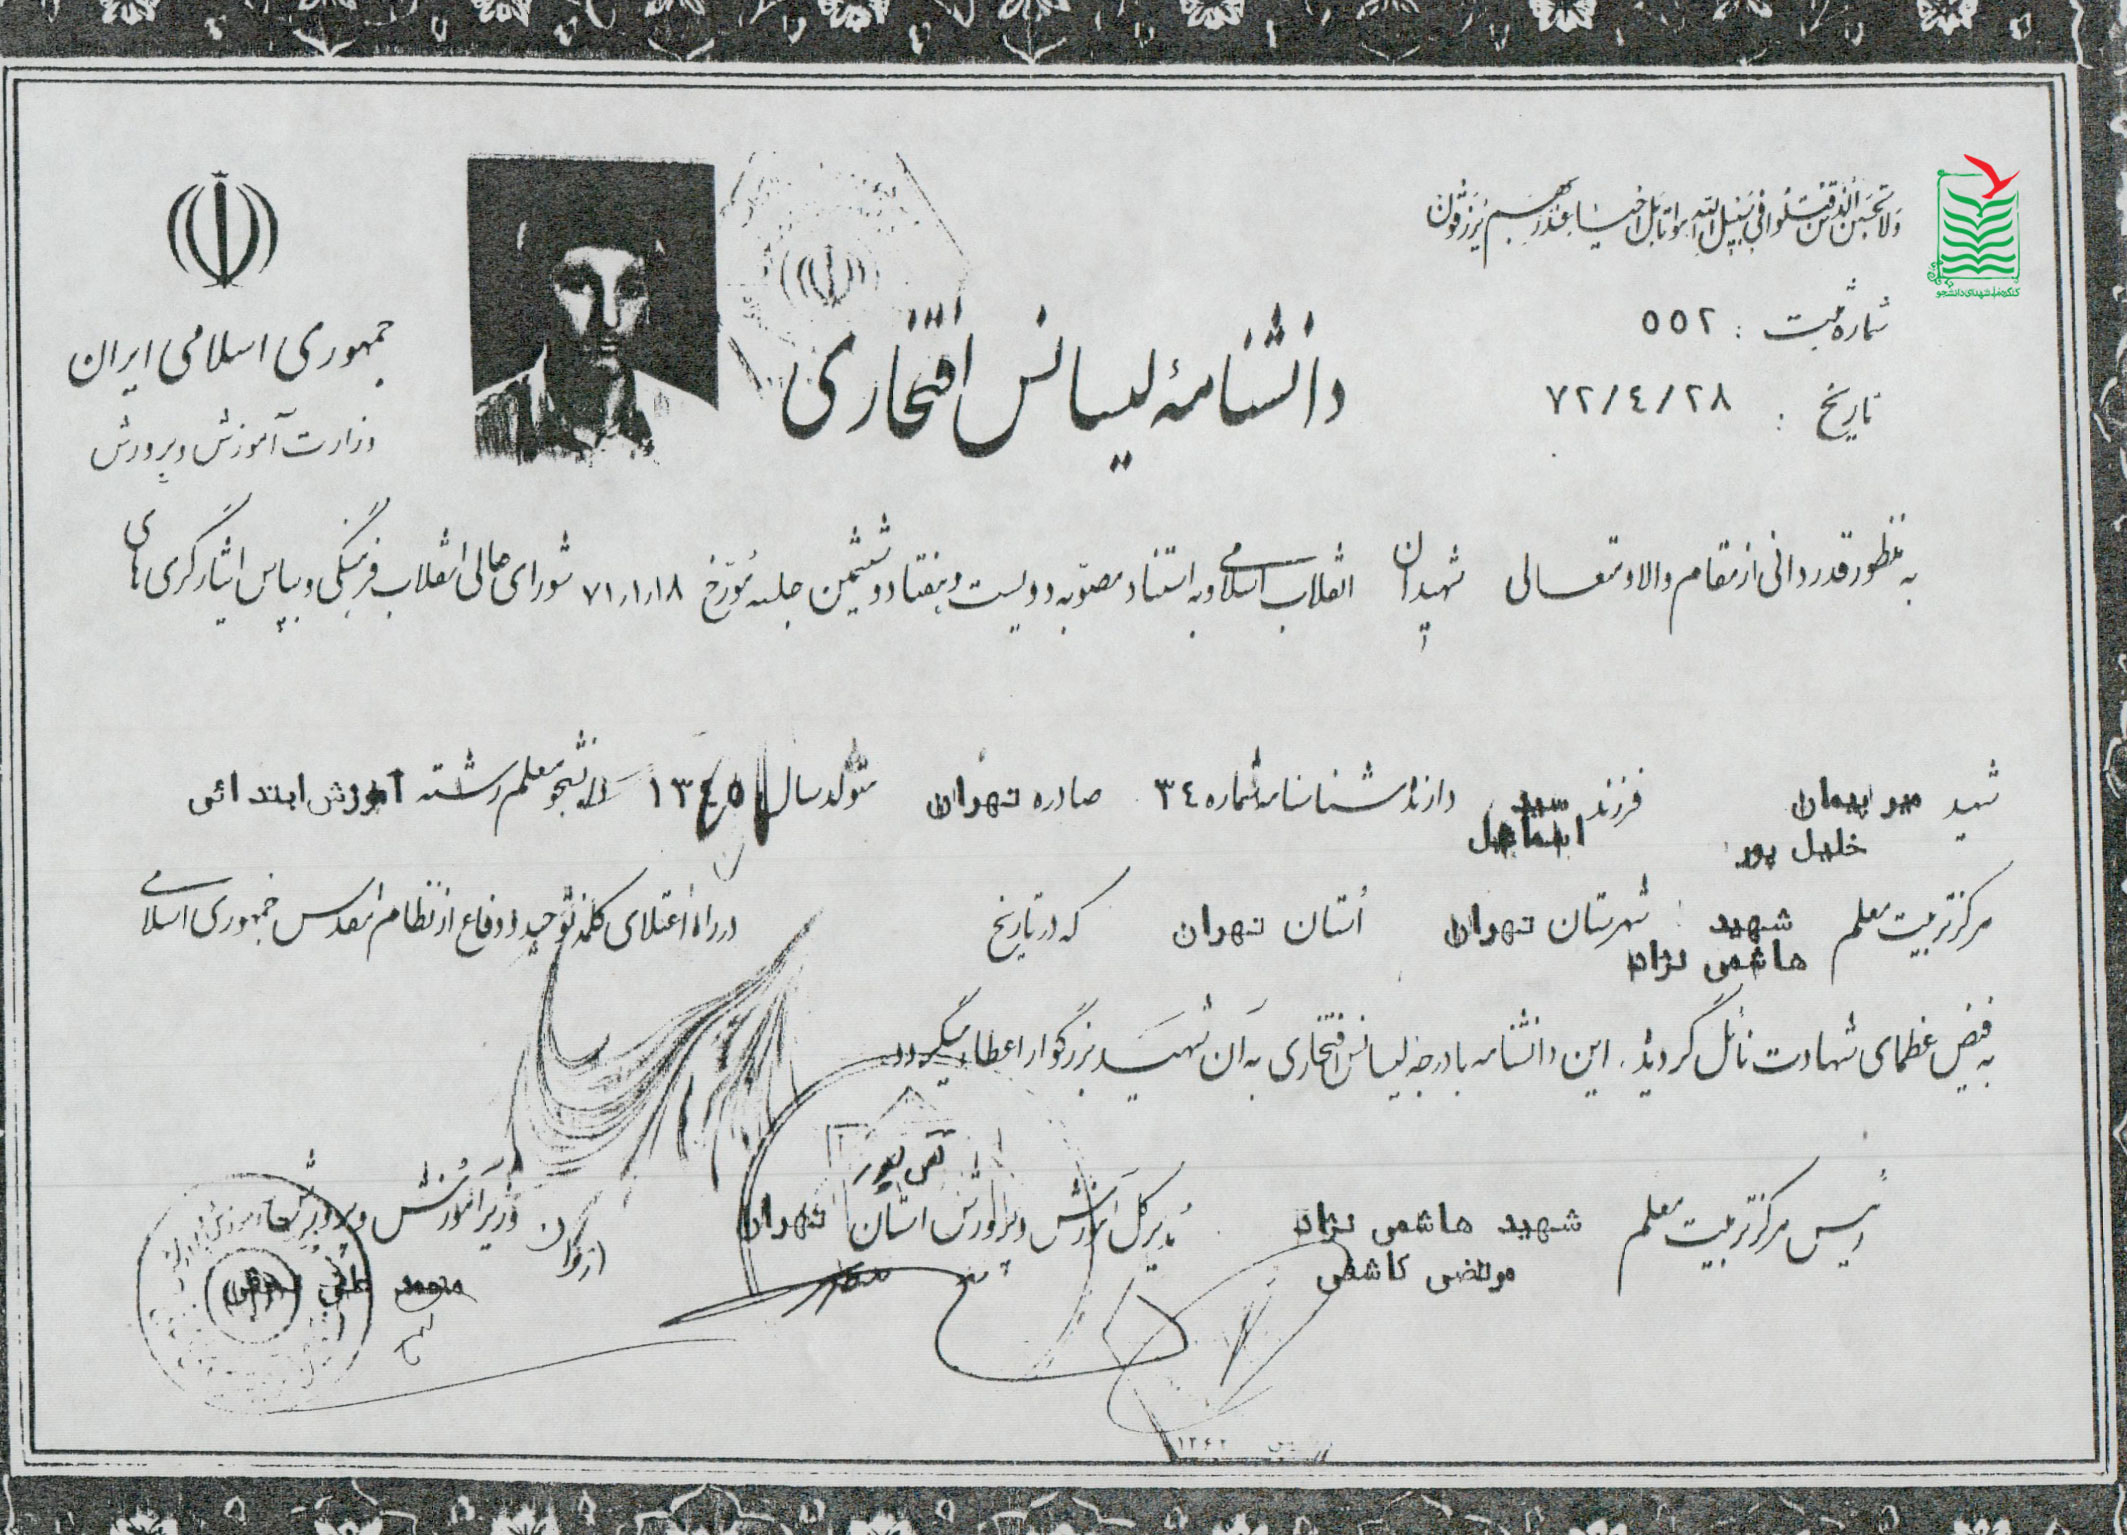 ولا تحسبن الذین قتلوا فی سبیل الله امواتا بل احیاء عند ربهم یرزقون
کنگره ملی شهدای دانشجو
شماره ثبت : ٥٥٢
تاریخ : ٧٢/٤/٢٨
دانشنامهٔ لیسانس افتخاری
جمهوری اسلامی ایران
وزارت آموزش و پرورش
به منظور قدردانی از مقام والا و متعالی شهیدان انقلاب اسلامی و به استناد مصوبه دویست و هفتاد و ششمین جلسه مورّخ ٧١/١/١٨ شورای عالی انقلاب فرهنگی و بپاس ایثارگری های
شهید میر پیمان فرزند سید دارندهٔ شناسنامه شماره ٣٤ صادره تهران متولد سال ١٣٤٥ دانشجو معلم رشته آموزش ابتدائی
خلیل پور اسماعیل
مرکز تربیت معلم شهید شهرستان تهران استان تهران که در تاریخ در راه اعتلای کلمه توحید و دفاع از نظام مقدس جمهوری اسلامی
هاشمی نژاد
به فیض عظمای شهادت نائل گردید. این دانشنامه با درجه لیسانس افتخاری به آن شهید بزرگوار اعطا میگردد.
رئیس مرکز تربیت معلم شهید هاشمی نژاد مدیر کل آموزش و پرورش استان تهران وزیر آموزش و پرورش
مرتضی کاشفی محمد علی نجفی